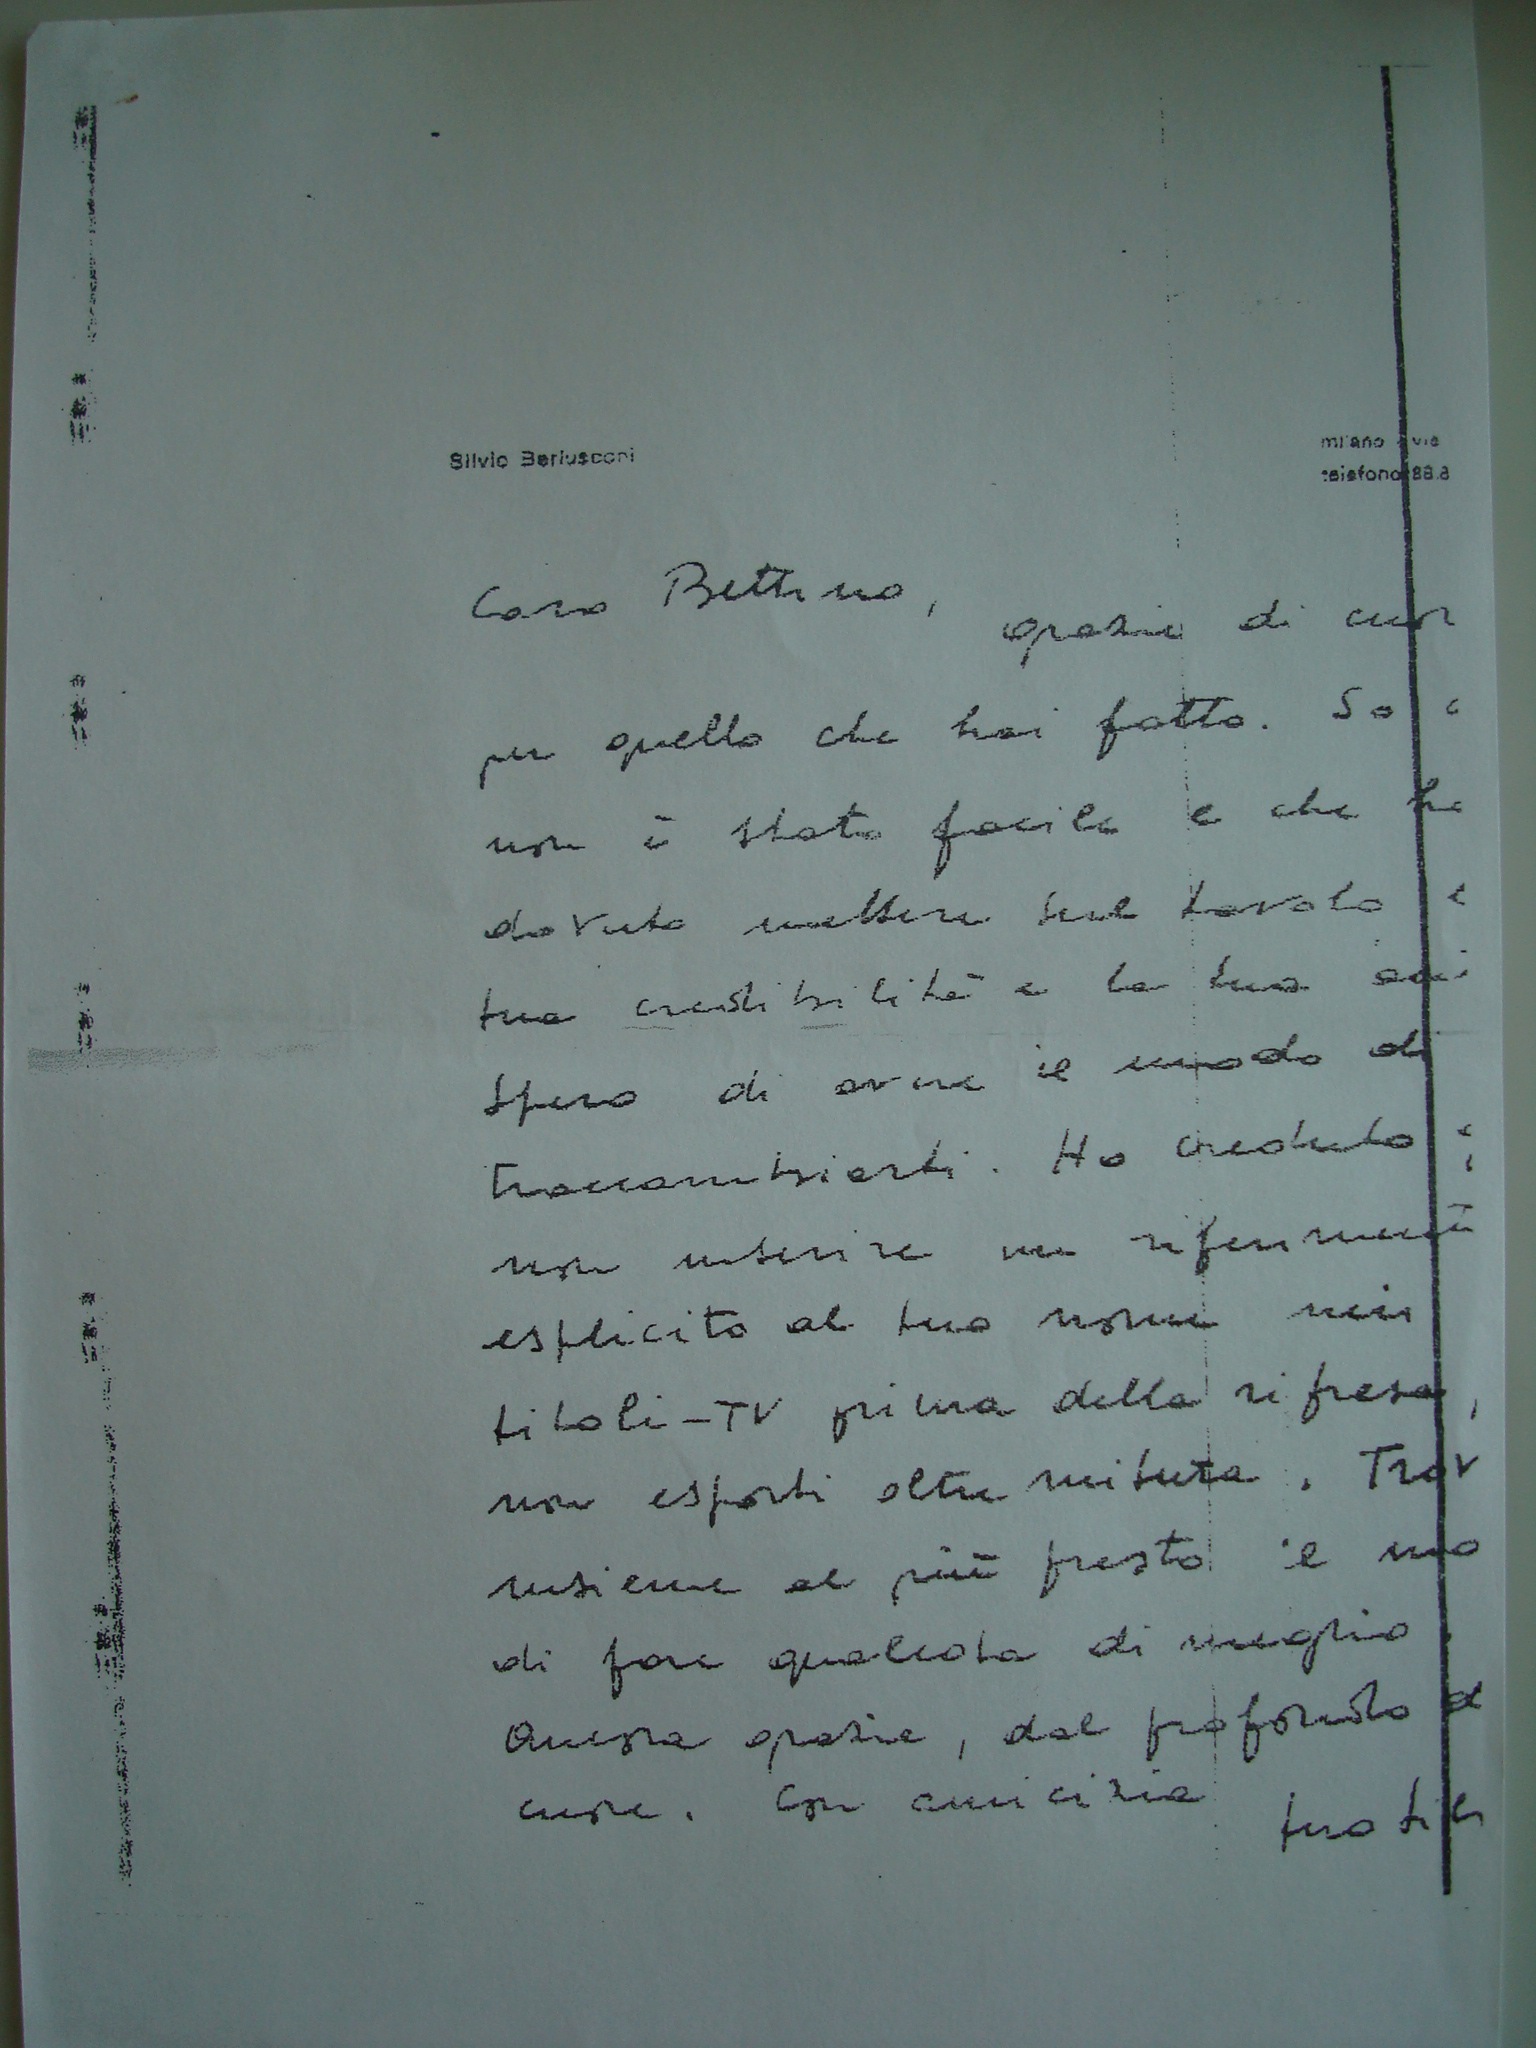 Silvio Berlusconi
milano vie
telefono 88.8
Caro Bettino,
grazie di cuor
per quello che hai fatto. So c
non è stato facile e che ha
dovuto mettere sul tavolo
tua credibilità e la tua
Spero di avere il modo di
traccambiarti. Ho creduto
non inserire un riferimento
esplicito al tuo nome nei
titoli-TV prima della ripresa,
non esporti oltre misura. Trov
insieme al più presto il mo
di fare qualcosa di meglio.
Ancora grazie, dal profondo d
cuore. Con amicizia
tuo Sil